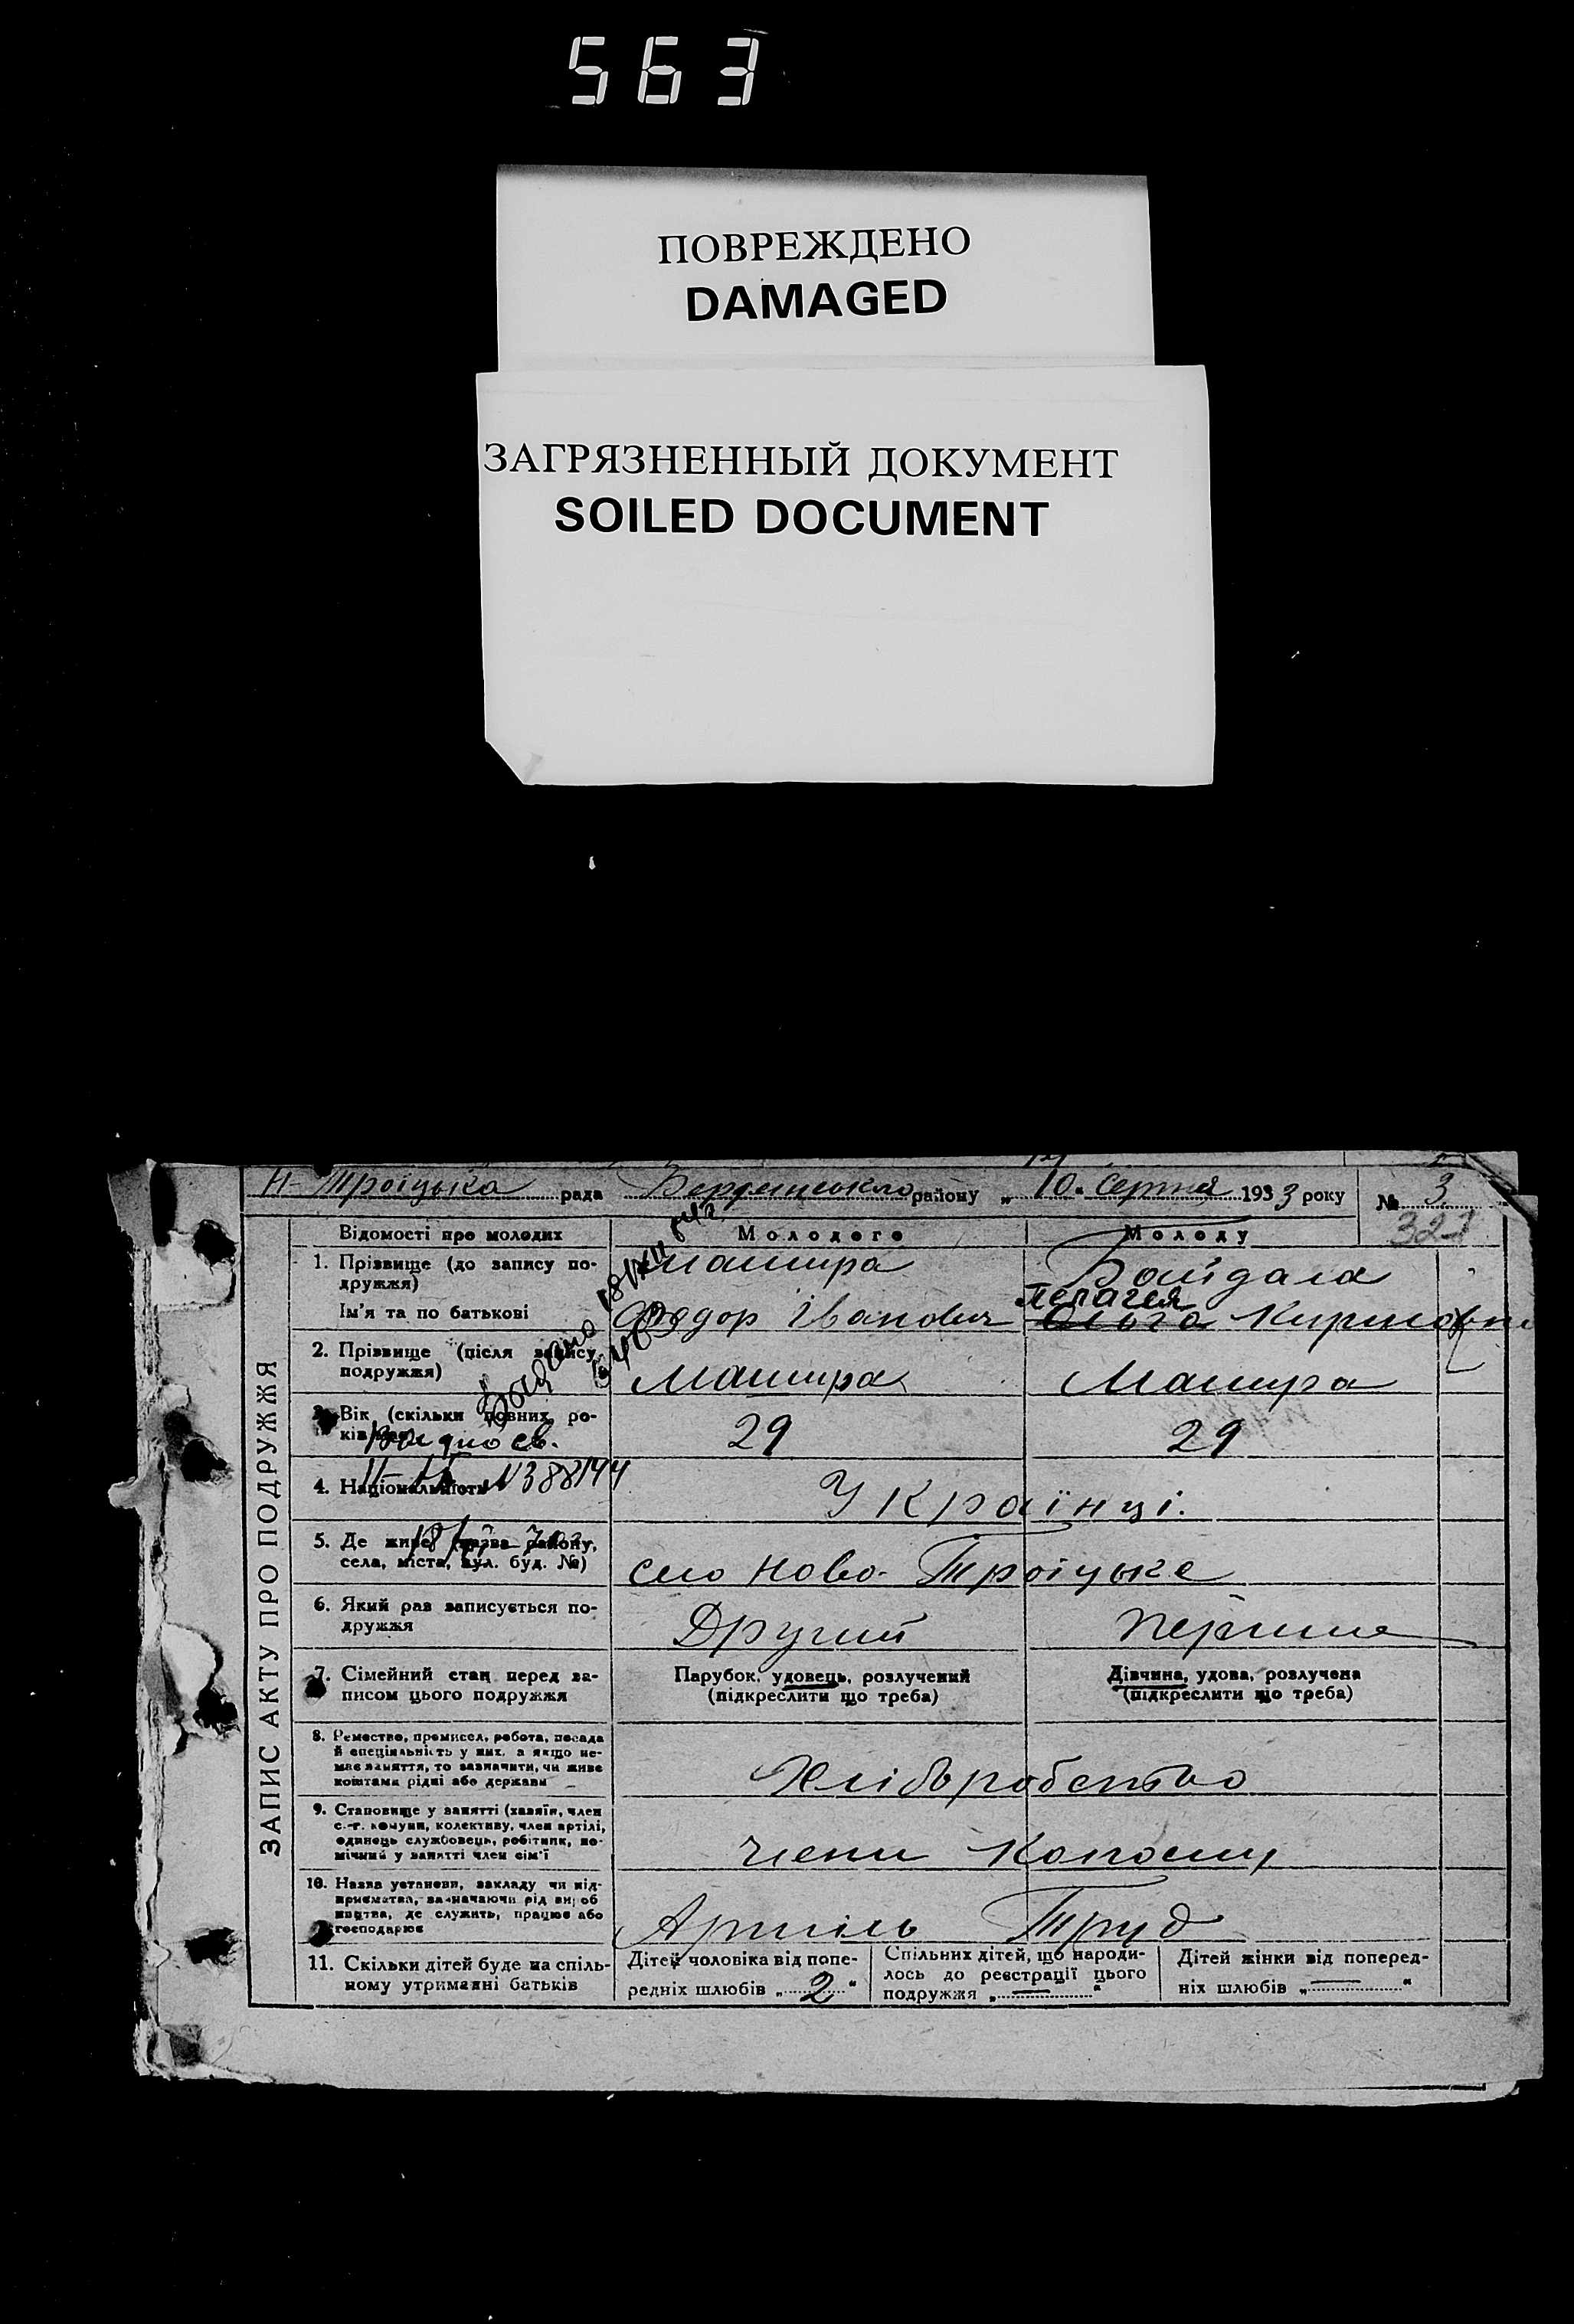 563
ПОВРЕЖДЕНО
DAMAGED
ЗАГРЯЗНЕННЫЙ ДОКУМЕНТ
SOILED DOCUMENT
Н-Троіцька рада Бердянського району „10„ Серпня 1933 року № 3
321
ЗАПИС АКТУ ПРО ПОДРУЖЖЯ
Відомості про молодих Молодого Молоду
1. Прізвище (до запису по-
дружжя)
Машира Байдала
Пелагея
Ім'я та по батькові Федор Іванович Ольга Кириловна
2. Прізвище (після запису
подружжя)
Машира Машира
3. Вік (скільки повних ро-
29 29
Видано св.
4. Національність №388144
Українці.
5. Де живе (назва району,
села, міста, вул. буд. №)
село Ново-Троіцьке
6. Який раз записується по-
дружжя
Другий Перше
7. Сімейний стан перед за-
писом цього подружжя
Парубок, удовець, розлучений
(підкреслити що треба)
Дівчина, удова, розлучена
(підкреслити що треба)
8. Ремество, промисел, робота, посада
й спеціяльність у них, а якщо не-
має заняття, то зазначити, чи живе
коштами рідні або держави
Хліборобство
9. Становище у занятті (хазяїн, член
с.-г. комуни, колективу, член артілі,
одинець службовець, робітник, по-
мічний у занятті член сім'ї
члени Колгоспу
10. Назва установи, закладу чи під-
приємства, зазначаючи рід вироб
ництва, де служить, працює або
господарює
Артіль Труд
11. Скільки дітей буде на спіль-
ному утриманні батьків
Дітей чоловіка від попе-
редніх шлюбів „ 2 “
Спільних дітей, що народи-
лось до реєстрації цього
подружжя „ — “
Дітей жінки від поперед-
ніх шлюбів „ — “